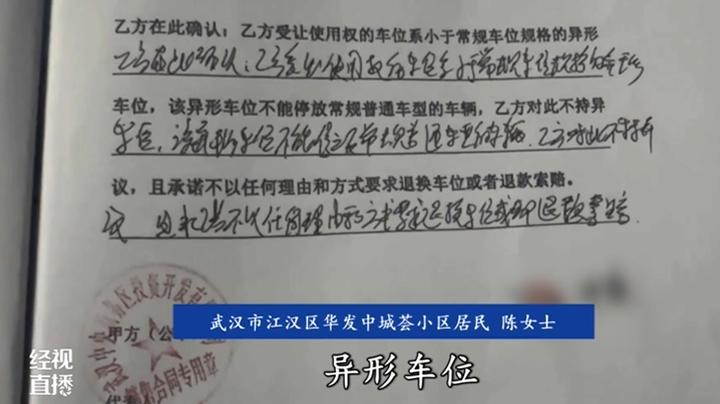 乙方在此确认：乙方受让使用权的车位系小于常规车位规格的异形
乙方在此确认：乙方受让使用权的车位系小于常规车位规格的异形
车位，该异形车位不能停放常规普通车型的车辆，乙方对此不持异
车位，该异形车位不能停放常规普通车型的车辆，乙方对此不持异
议，且承诺不以任何理由和方式要求退换车位或者退款索赔。
议，且承诺不以任何理由和方式要求退换车位或者退款索赔。
甲方（公
合同专用章
武汉市江汉区华发中城荟小区居民 陈女士
经视
直播
异形车位